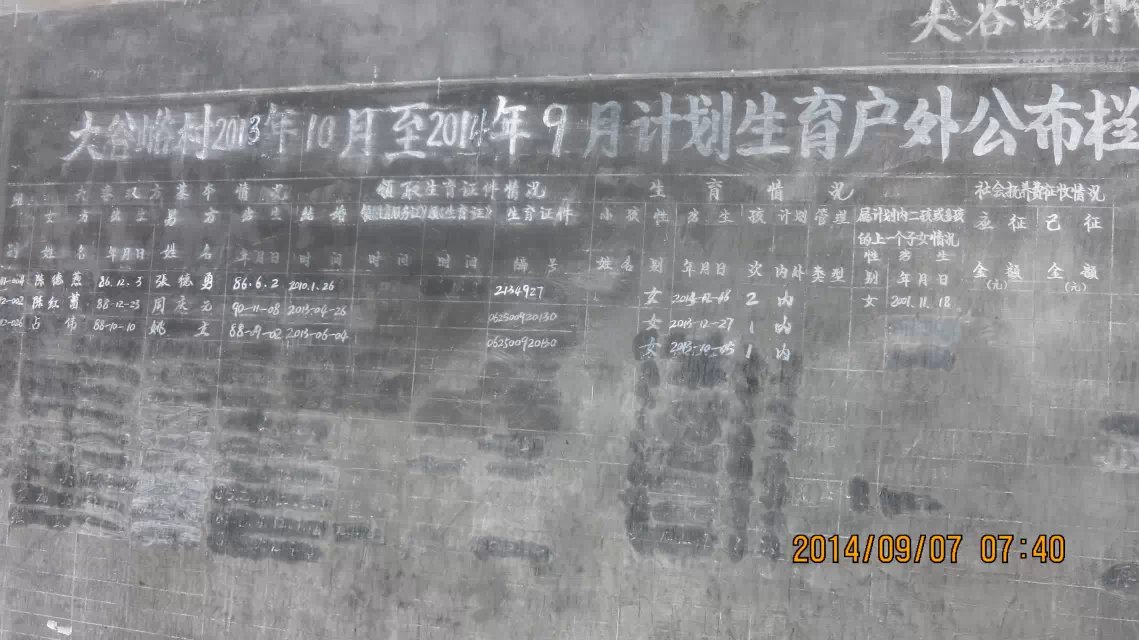 大谷
大谷 村2013年10月至2014年9月计划生育户外公布栏
组 夫妻双方基本情况 领取生育证件情况 生育情况 社会抚养费征收情况
女方 出生 男方 出生 结婚 生育证件 小孩 性 出生 孩 计划 管理 属计划内二孩或多孩 应征 已征
的上一个子女情况
别 姓名 年月日 姓名 年月日 时间 时间 时间 编号 姓名 别 年月日 次 内外 类型 性别 出生年月日 金额(元) 金额(元)
陈德燕 86.12.3 张德勇 86.6.2 2010.1.26 2134927 女 2 内 女 2001.11.18
12-002 陈红 88-12-23 周 元 90-11-08 2013-04-26 062500920130 女 2013-12-27 1 内
占伟 88-10-10 姚立 88-09-02 2013-06-04 062500920130 女 2013-10-05 1 内
2014/09/07 07:40